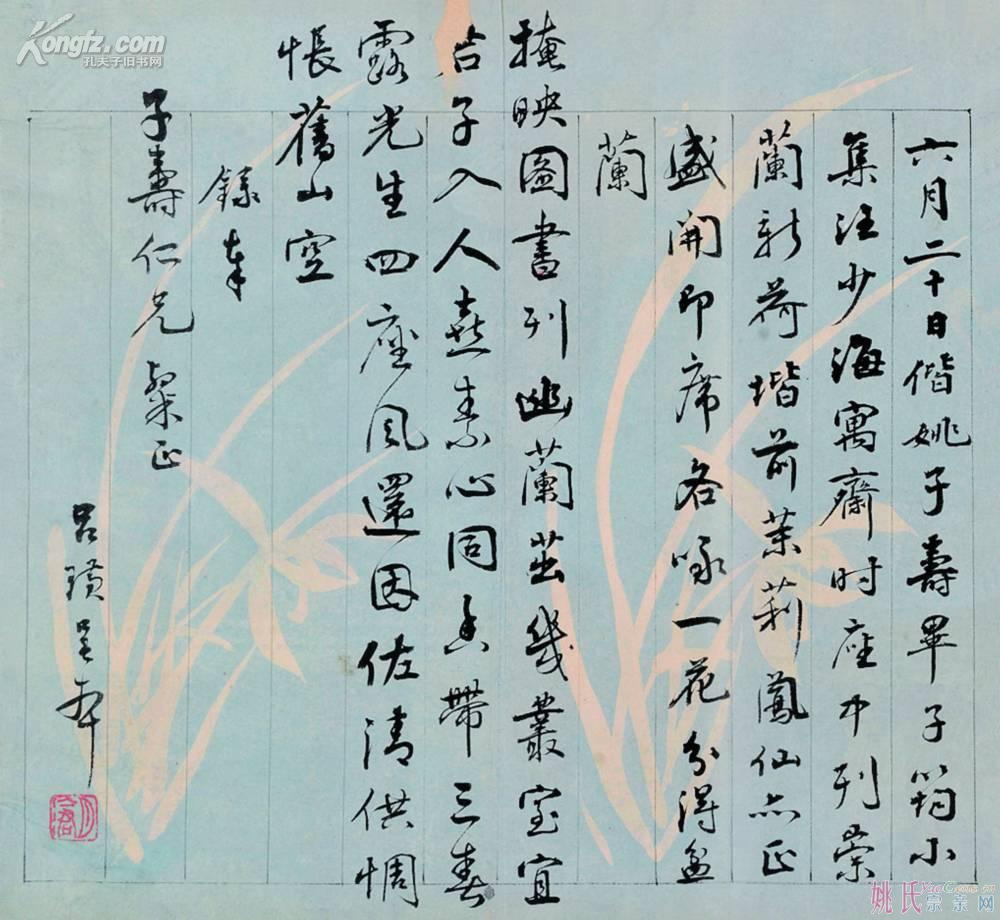 六月二十日偕姚子壽畢子筠小
集汪少海寓齋时座中列崇
蘭新荷堦前茉莉鳳仙亦正
盛開即席各咏一花分得盆
蘭
掩映圖書列幽蘭茁幾叢室宜
君子入人憙素心同香帶三春
露光生四座風還因佐清供惆
悵舊山空
錄奉
子壽仁兄粲正
呂璜呈
月滄
Kongfz.com
孔夫子旧书网
姚氏宗亲网